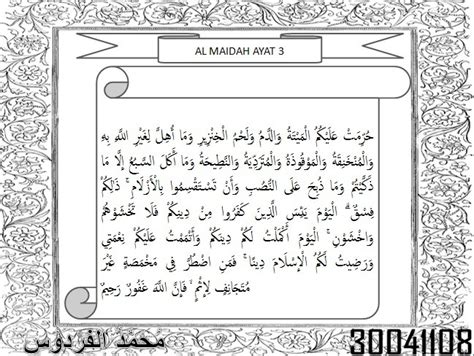 AL MAIDAH AYAT 3
حُرِّمَتْ عَلَيْكُمُ الْمَيْتَةُ وَالدَّمُ وَلَحْمُ الْخِنْزِيرِ وَمَا أُهِلَّ لِغَيْرِ اللَّهِ بِهِ
وَالْمُنْخَنِقَةُ وَالْمَوْقُوذَةُ وَالْمُتَرَدِّيَةُ وَالنَّطِيحَةُ وَمَا أَكَلَ السَّبُعُ إِلَّا مَا
ذَكَّيْتُمْ وَمَا ذُبِحَ عَلَى النُّصُبِ وَأَنْ تَسْتَقْسِمُوا بِالْأَزْلَامِ ۚ ذَٰلِكُمْ
فِسْقٌ ۗ الْيَوْمَ يَئِسَ الَّذِينَ كَفَرُوا مِنْ دِينِكُمْ فَلَا تَخْشَوْهُمْ
وَاخْشَوْنِ ۚ الْيَوْمَ أَكْمَلْتُ لَكُمْ دِينَكُمْ وَأَتْمَمْتُ عَلَيْكُمْ نِعْمَتِي
وَرَضِيتُ لَكُمُ الْإِسْلَامَ دِينًا ۚ فَمَنِ اضْطُرَّ فِي مَخْمَصَةٍ غَيْرَ
مُتَجَانِفٍ لِإِثْمٍ ۙ فَإِنَّ اللَّهَ غَفُورٌ رَحِيمٌ
محمد الفردوس
30041108